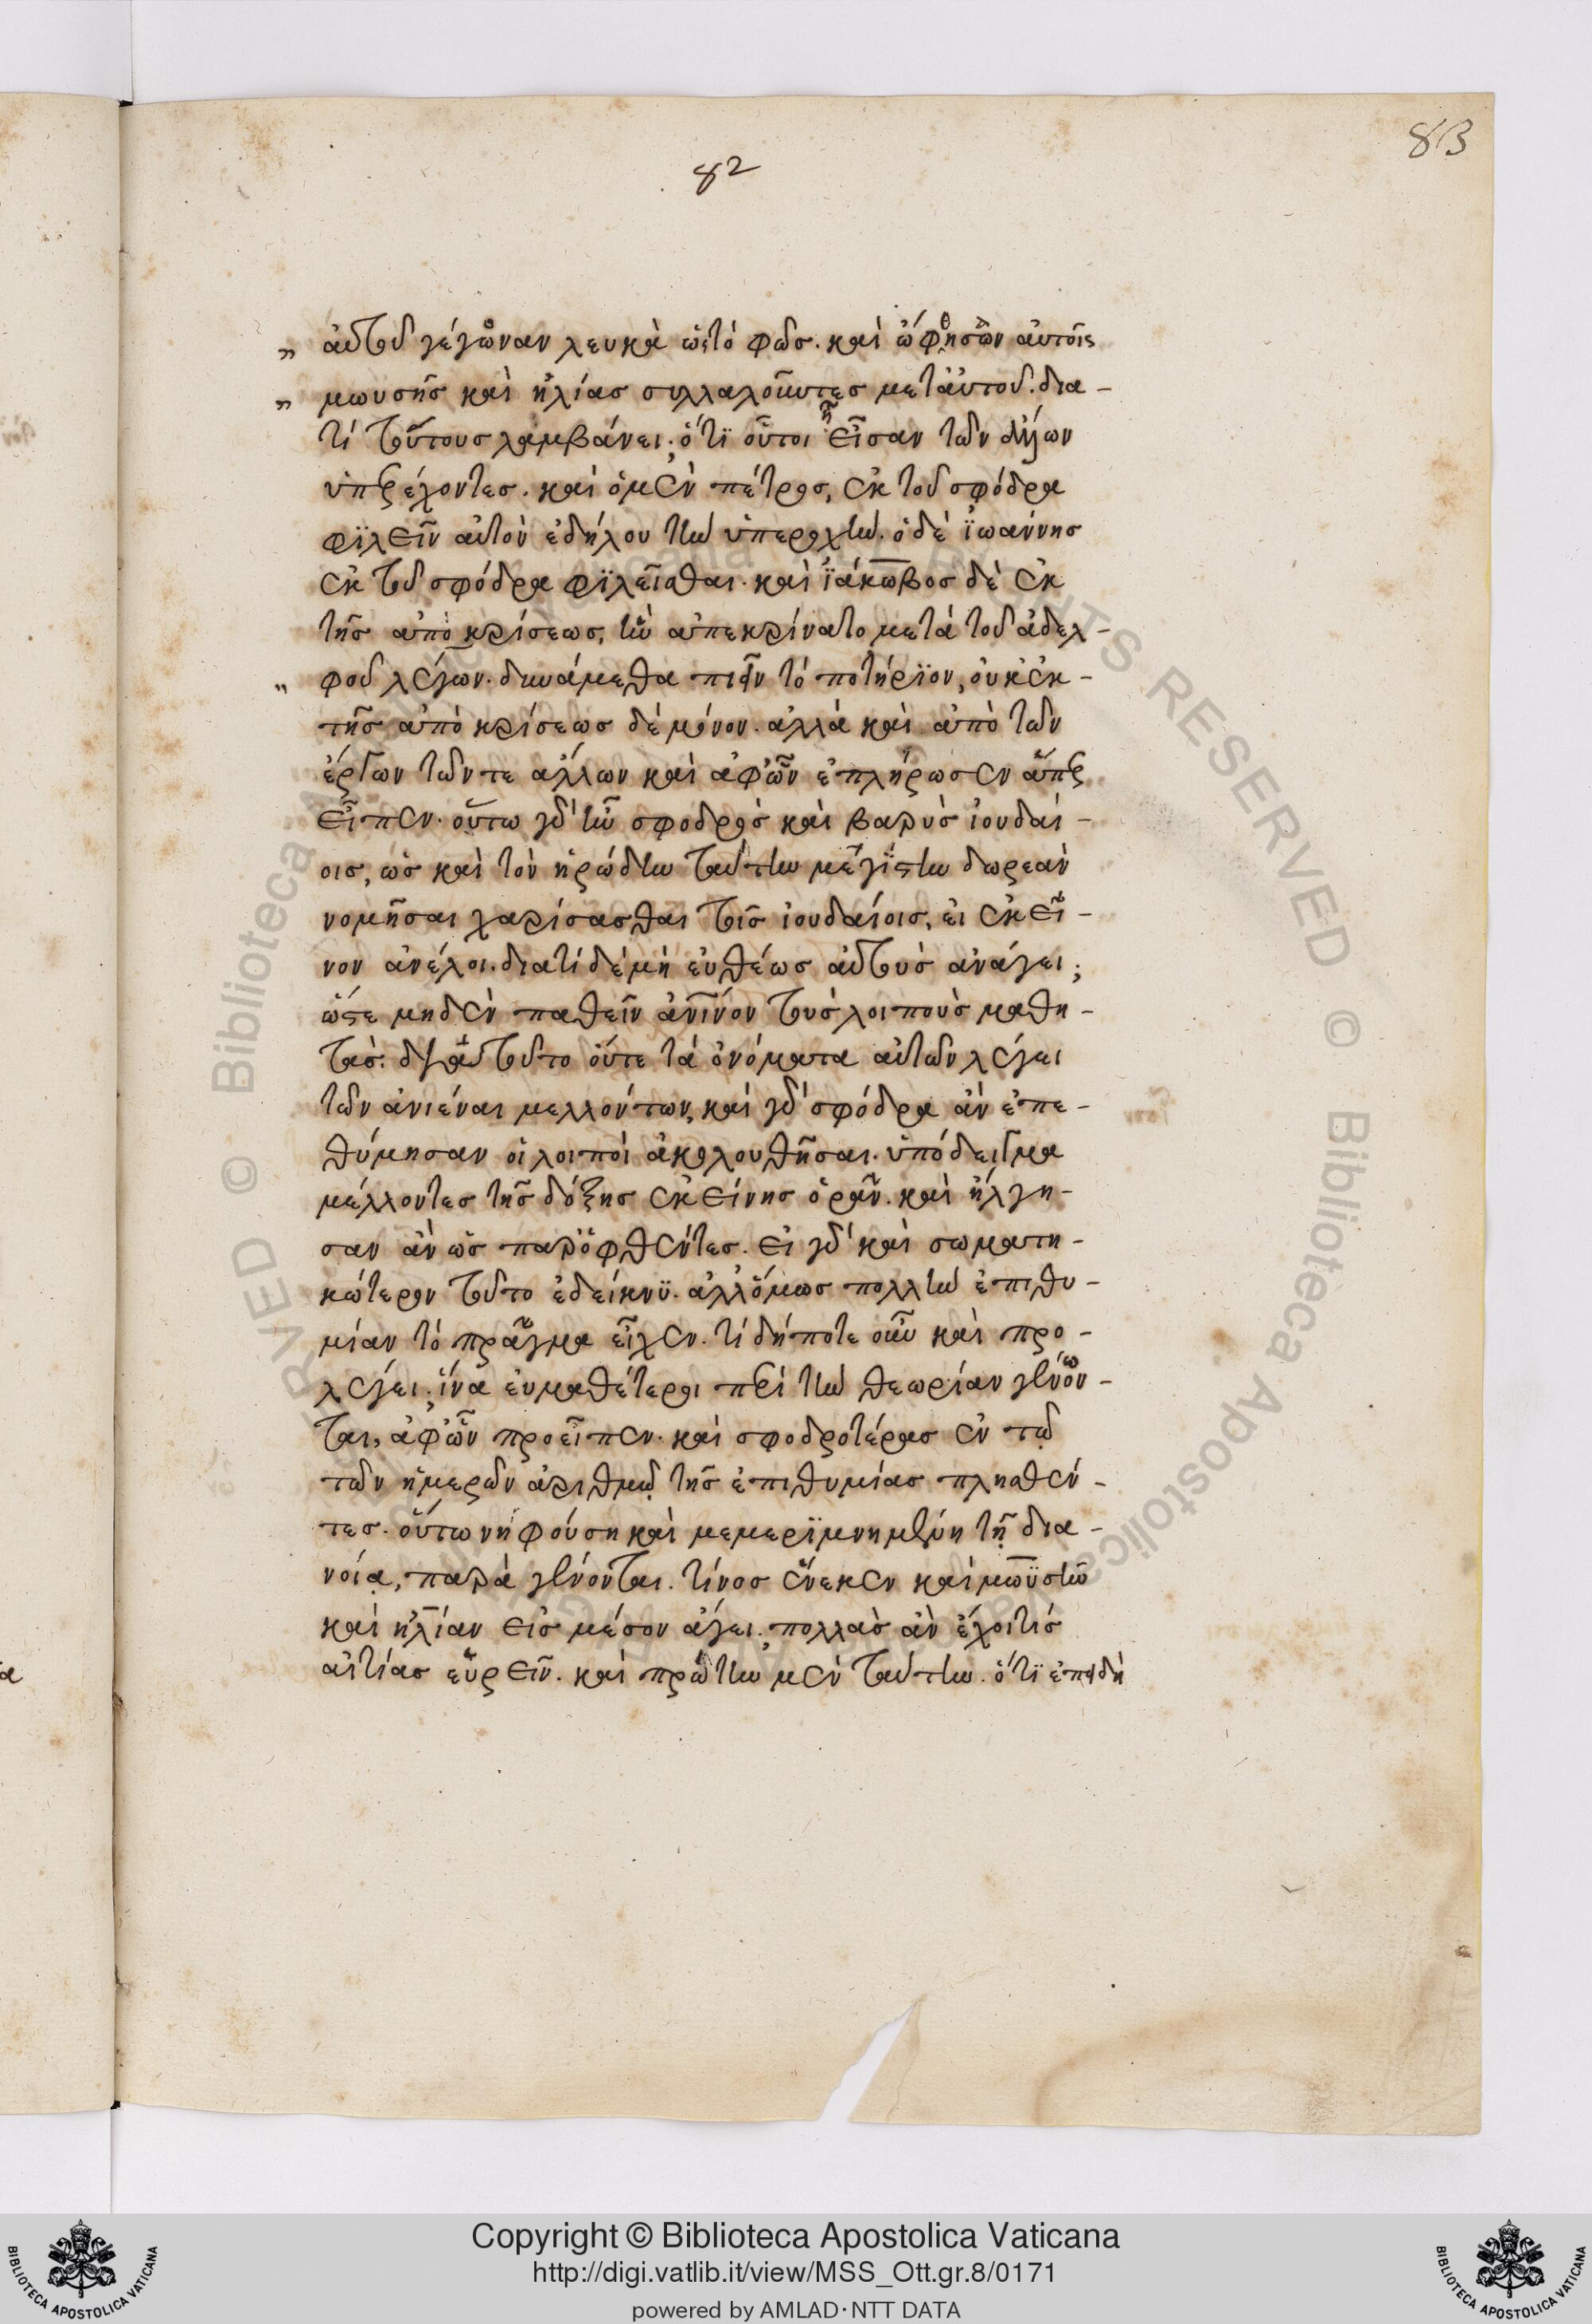 83
82
αὐτοῦ γέγωναν λευκὰ ὡς τὸ φῶς. καὶ ὤφθησαν αὐτοῖς
μωυσῆς καὶ ἡλίας συλλαλοῦντες μετ' αὐτοῦ. δια -
τί τούτους λαμβάνει; ὅτϊ οὗτοι ἦσαν τῶν ἄλλων
ὑπερέχοντες. καὶ ὁ μὲν πέτρος, ἐκ τοῦ σφόδρα
φϊλεῖν αὐτὸν ἐδήλου τὴν ὑπεροχήν. ὁ δὲ ἰωάννης
ἐκ τοῦ σφόδρα φϊλεῖσθαι. καὶ ἰάκωβος δὲ ἐκ
τῆς ἀπὸ κρίσεως, ἣν ἀπεκρίνατο μετὰ τοῦ ἀδελ -
φοῦ λέγων. δυνάμεθα πιεῖν τὸ ποτήρϊον, οὐκ ἐκ -
τῆς ἀπὸ κρίσεως δὲ μόνον. ἀλλὰ καὶ ἀπὸ τῶν
ἔργων τῶν τε ἄλλων καὶ ἀφ' ὧν ἐπλήρωσεν ἅπερ
εἶπεν. οὕτω γὰρ ἦν σφοδρὸς καὶ βαρὺς ἰουδαί -
οις, ὡς καὶ τὸν ἡρώδην ταύτην μεγίστην δωρεὰν
νομῆσαι χαρίσασθαι τοῖς ἰουδαίοις, εἰ ἐκεῖ -
νον ἀνέλοι. διατί δὲ μὴ εὐθέως αὐτοὺς ἀνάγει;
ὥστε μηδὲν παθεῖν ἀνῖνον τοὺς λοιποὺς μαθη -
τάς. διὰ τοῦτο οὔτε τὰ ὀνόματα αὐτῶν λέγει
τῶν ἀνιέναι μελλόντων, καὶ γὰρ σφόδρα ἂν ἐπε -
θύμησαν οἱ λοιποὶ ἀκολουθῆσαι. ὑπόδειγμα
μέλλοντες τῆς δόξης ἐκείνης ὁρᾶν. καὶ ἤλγη -
σαν ἂν ὡς παρόφθέντες. εἰ γὰρ καὶ σωματη -
κώτερον τοῦτο ἐδείκνϋ. ἀλλ' ὅμως πολλὴν ἐπιθυ -
μίαν τὸ πρᾶγμα εἶχεν. τί δήποτε οὖν καὶ προ -
λέγει; ἵνα εὐμαθέτεροι περὶ τὴν θεωρίαν γένων -
ται, ἀφ' ὧν προεῖπεν. καὶ σφοδροτέρας ἐν τῷ
τῶν ἡμερῶν ἀριθμῷ τῆς ἐπιθυμίας πλησθέν -
τες. οὕτω νηφούση καὶ μεμερϊμνημένη τῇ δια -
νοίᾳ, παρὰ γένονται. τίνος ἕνεκεν καὶ μωϋσῆν
καὶ ἡλίαν εἰς μέσον ἄγει. πολλὰς ἂν ἔχοι τίς
αἰτίας εὑρεῖν. καὶ πρώτην μὲν ταύτην. ὅτϊ ἐπειδὴ
Copyright © Biblioteca Apostolica Vaticana
http://digi.vatlib.it/view/MSS_Ott.gr.8/0171
powered by AMLAD·NTT DATA